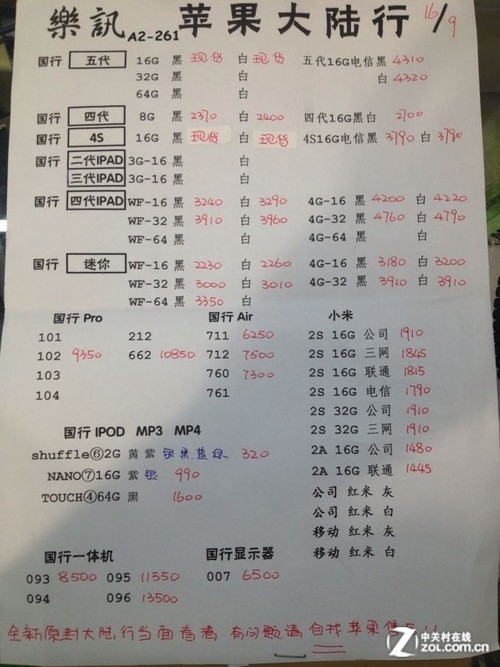 樂訊 A2-261 苹果大陆行 16/9
国行 五代 16G 黑 现货 白 现货 五代16G电信黑 4310
32G 黑 白 白 4320
64G 黑 白
国行 四代 8G 黑 2370 白 2400 四代16G黑白 2700
国行 4S 16G 黑 现货 白 现货 4S16G电信黑 3790 白 3790
国行 二代IPAD 3G-16 黑 白
三代IPAD 3G-16 黑 白
国行 四代IPAD WF-16 黑 3240 白 3290 4G-16 黑 4200 白 4220
WF-32 黑 3910 白 3960 4G-32 黑 4760 白 4790
WF-64 黑 白 4G-64 黑 白
国行 迷你 WF-16 黑 2230 白 2260 4G-16 黑 3180 白 3200
WF-32 黑 3000 白 3010 4G-32 黑 3910 白 3910
WF-64 黑 3350 白
国行 Pro 国行 Air 小米
101 212 711 6250 2S 16G 公司 1910
102 9350 662 10850 712 7600 2S 16G 三网 1845
103 760 7300 2S 16G 联通 1815
104 761 2S 16G 电信 1790
2S 32G 公司 1910
国行 IPOD MP3 MP4 2S 32G 三网 1910
shuffle⑥2G 黄紫 银黑蓝 320 2A 16G 公司 1480
NANO⑦16G 紫 银 990 2A 16G 联通 1445
TOUCH④64G 黑 1600 公司 红米 灰
公司 红米 白
移动 红米 灰
移动 红米 白
国行一体机 国行显示器
093 8500 095 11550 007 6500
094 096 13500
全新原封大陆行当面查看 有问题请自找苹果售后!!
中关村在线
zol.com.cn